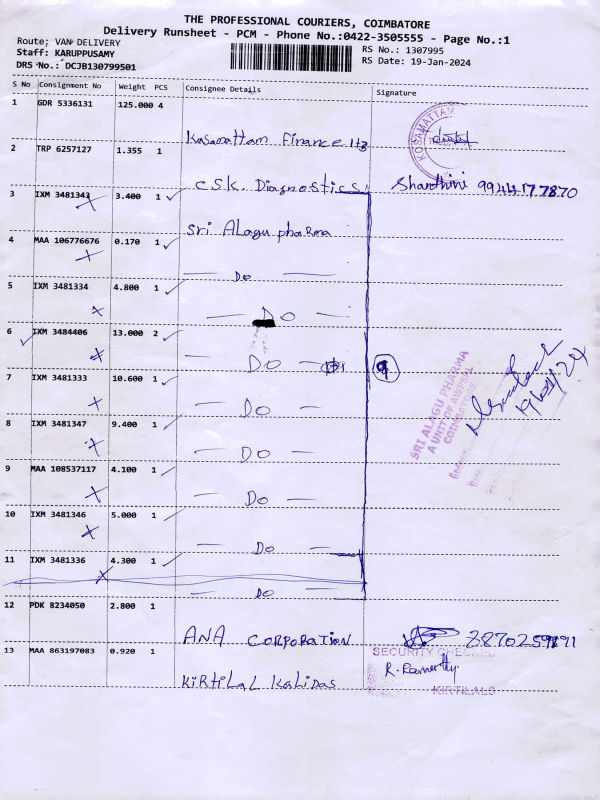 THE PROFESSIONAL COURIERS, COIMBATORE
Delivery Runsheet - PCM - Phone No.:0422-3505555 - Page No.:1
Route; VAN DELIVERY
Staff: KARUPPUSAMY
DRS No.: DCJB130799501
RS No.: 1307995
RS Date: 19-Jan-2024
S No Consignment No Weight PCS Consignee Details Signature
1 GDR 5336131 125.000 4
Kosamattam Finance ltd
KOSAMATTAM
2 TRP 6257127 1.355 1
C.S.K. Diagnostics
Shanthini 9944177870
3 IXM 3481343 3.400 1
Sri Alagu pharma
4 MAA 106776676 0.170 1
— Do —
5 IXM 3481334 4.800 1
— Do —
6 IXM 3484406 13.000 2
— Do —
9
7 IXM 3481333 10.600 1
— Do —
SRI ALAGU PHARMA
A UNIT OF
COIMBATORE
19/01/24
8 IXM 3481347 9.400 1
— Do —
9 MAA 108537117 4.100 1
— Do —
10 IXM 3481346 5.000 1
— Do —
11 IXM 3481336 4.300 1
— Do —
12 PDK 8234050 2.800 1
ANA CORPORATION
13 MAA 863197083 0.920 1
KiRTiLAL KALiDAS
SECURITY CHECKED
KIRTILALS